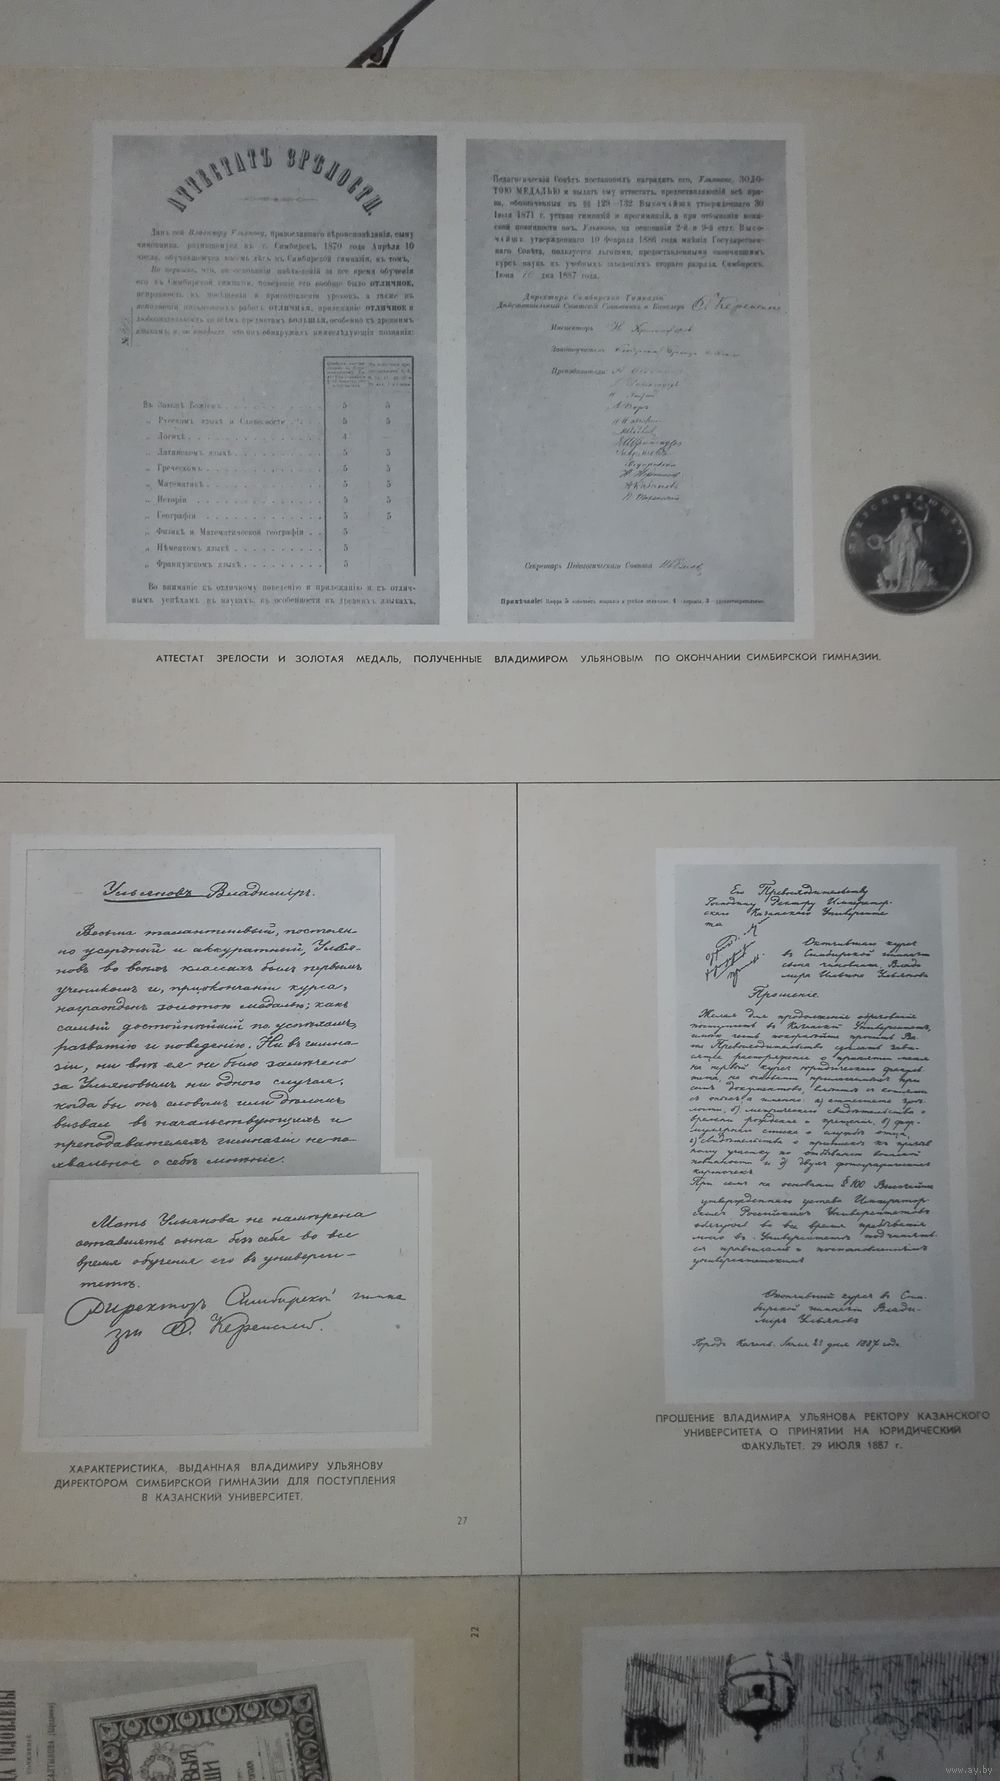 АТТЕСТАТЪ ЗРѢЛОСТИ.
Данъ сей Владиміру Ульянову, православнаго вѣроисповѣданія, сыну
чиновника, родившемуся въ г. Симбирскѣ, 1870 года Апрѣля 10
числа, обучавшемуся восемь лѣтъ въ Симбирской гимназіи, въ томъ,
Во первыхъ, что, на основаніи наблюденій за все время обученія
его въ Симбирской гимназіи, поведеніе его вообще было ОТЛИЧНОЕ,
исправность въ посѣщеніи и приготовленіи уроковъ, а также въ
исполненіи письменныхъ работъ ОТЛИЧНАЯ, прилежаніе ОТЛИЧНОЕ и
любознательность по всѣмъ предметамъ БОЛЬШАЯ, особенно къ древнимъ
языкамъ, и, во вторыхъ, что онъ обнаружилъ нижеслѣдующія познанія:
Въ Законѣ Божіемъ 5 5
„ Русскомъ языкѣ и Словесности 5 5
„ Логикѣ 4 –
„ Латинскомъ языкѣ 5 5
„ Греческомъ 5 5
„ Математикѣ 5 5
„ Исторіи 5 5
„ Географіи 5 5
„ Физикѣ и Математической географіи 5
„ Нѣмецкомъ языкѣ 5
„ Французскомъ языкѣ 5
Во вниманіе къ отличному поведенію и прилежанію и къ отлич-
нымъ успѣхамъ въ наукахъ, въ особенности въ древнихъ языкахъ,
Педагогическій Совѣтъ постановилъ наградить его, Ульянова, ЗОЛО-
ТОЮ МЕДАЛЬЮ и выдать ему аттестатъ, предоставляющій всѣ пра-
ва, обозначенныя въ §§ 129–132 Высочайше утвержденнаго 30
Іюля 1871 г. устава гимназій и прогимназій, а при отбываніи воин-
ской повинности онъ, Ульяновъ, на основаніи 2-й и 9-й стат. Высо-
чайше утвержденнаго 10 Февраля 1886 года мнѣнія Государствен-
наго Совѣта, пользуется льготами, предоставленными окончившимъ
курсъ наукъ въ учебныхъ заведеніяхъ втораго разряда. Симбирскъ.
Іюня 10 дня 1887 года.
Директоръ Симбирской Гимназіи
Дѣйствительный Статскій Совѣтникъ и Кавалеръ Ѳ. Керенскій.
Инспекторъ И. Христофоровъ
Законоучитель
Преподаватели:
Секретарь Педагогическаго Совѣта
Примѣчаніе: Цифра 5 означаетъ познанія и успѣхи отличные, 4 – хорошіе, 3 – удовлетворительные.
ПРЕУСПѢВАЮЩЕМУ
АТТЕСТАТ ЗРЕЛОСТИ И ЗОЛОТАЯ МЕДАЛЬ, ПОЛУЧЕННЫЕ ВЛАДИМИРОМ УЛЬЯНОВЫМ ПО ОКОНЧАНИИ СИМБИРСКОЙ ГИМНАЗИИ.
Ульяновъ Владиміръ.
Весьма талантливый, постоян-
но усердный и аккуратный, Улья-
новъ во всѣхъ классахъ былъ первымъ
ученикомъ и, при окончаніи курса,
награжденъ золотою медалью, какъ
самый достойнѣйшій по успѣхамъ,
развитію и поведенію. Ни въ гимна-
зіи, ни внѣ ея не было замѣчено
за Ульяновымъ ни одного случая,
когда бы онъ словомъ или дѣломъ
вызвалъ въ начальствующихъ и
преподавателяхъ гимназіи не по-
хвальное о себѣ мнѣніе.
Мать Ульянова не намѣрена
оставлять сына безъ себя во все
время обученія его въ универси-
тетѣ.
Директоръ Симбирской гимна
зіи Ѳ. Керенскій.
ХАРАКТЕРИСТИКА, ВЫДАННАЯ ВЛАДИМИРУ УЛЬЯНОВУ
ДИРЕКТОРОМ СИМБИРСКОЙ ГИМНАЗИИ ДЛЯ ПОСТУПЛЕНИЯ
В КАЗАНСКИЙ УНИВЕРСИТЕТ.
27
Его Превосходительству
Господину Ректору Император-
скаго Казанскаго Университе
та
Окончившаго курсъ
въ Симбирской гимназіи
сына чиновника, Влади
міра Ильина Ульянова
Прошеніе.
Желая для продолженія образованія
поступить въ Казанскій Университетъ,
имѣю честь покорнѣйше просить Ва-
ше Превосходительство сдѣлать зави-
сящее распоряженіе о принятіи меня
на первый курсъ юридическаго факуль-
тета, на основаніи прилагаемыхъ при
семъ документовъ,
съ описью а именно: а) аттестата зрѣ-
лости, б) метрическаго свидѣтельства о
времени рожденія и крещенія, в) фор-
мулярнаго списка о службѣ отца,
г) свидѣтельства о припискѣ къ призыв
ному участку по отбыванію воинской
повинности и д) двухъ фотографическихъ
карточекъ
При семъ на основаніи § 100 Высочайше
утвержденнаго устава Император-
скихъ Россійскихъ Университетовъ
обязуюсь во все время пребыванія
моего въ Университетѣ подчинять-
ся правиламъ и постановленіямъ
университетскимъ
Окончившій курсъ въ Сим-
бирской гимназіи Влади-
міръ Ульяновъ
Городъ Казань. Іюля 29 дня 1887 года
ПРОШЕНИЕ ВЛАДИМИРА УЛЬЯНОВА РЕКТОРУ КАЗАНСКОГО
УНИВЕРСИТЕТА О ПРИНЯТИИ НА ЮРИДИЧЕСКИЙ
ФАКУЛЬТЕТ. 29 ИЮЛЯ 1887 г.
22
ГОЛОВЛЕВЫ
www.ay.by